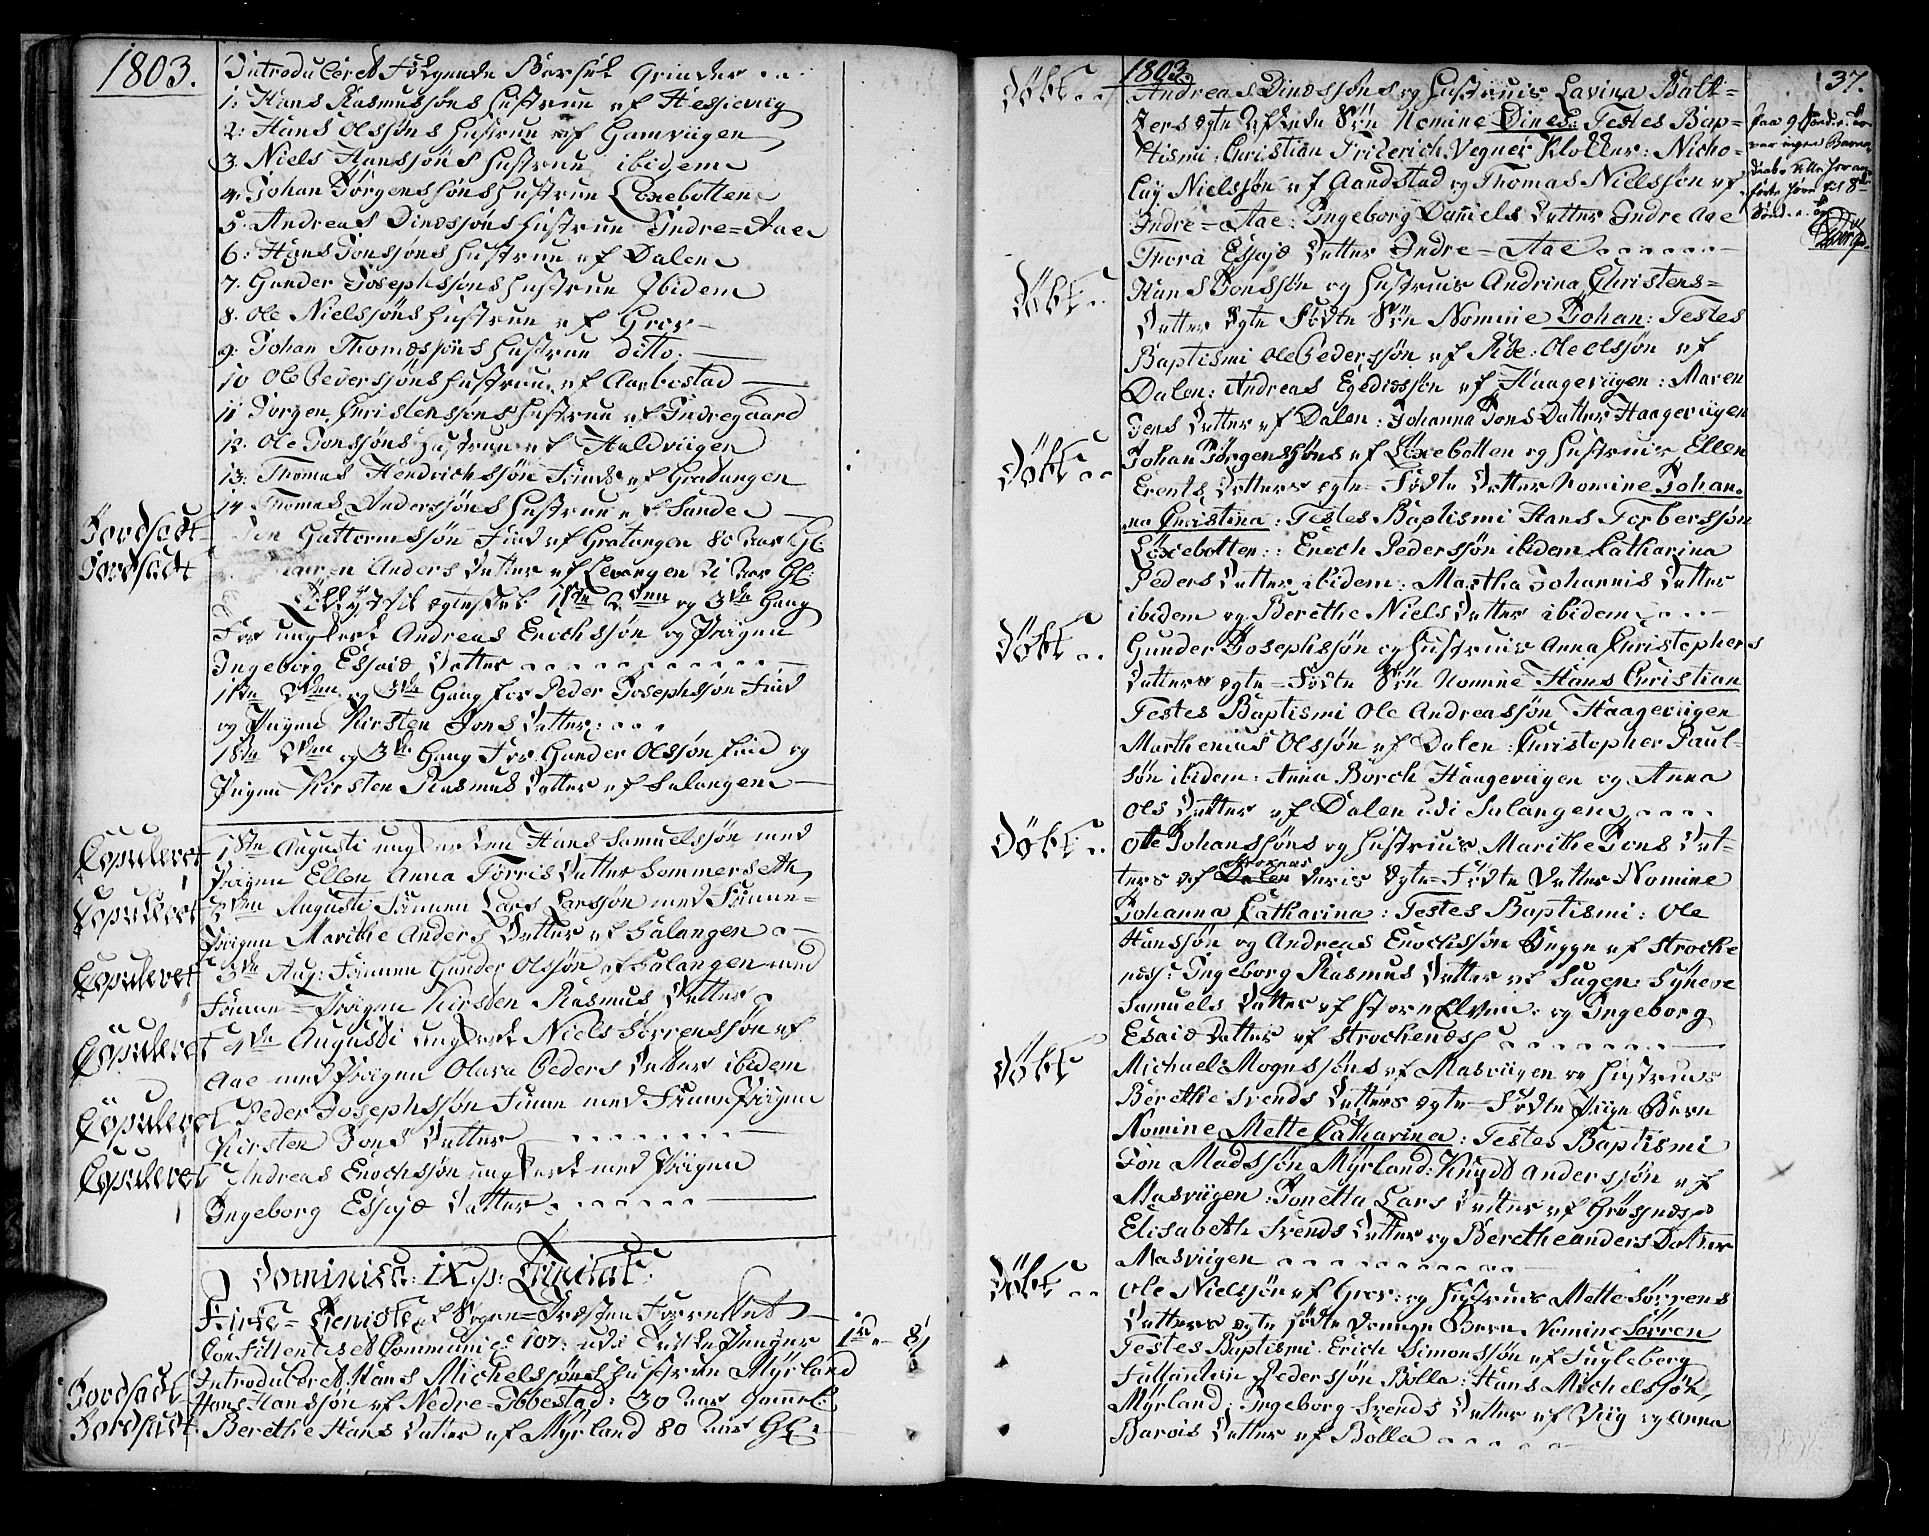 1803.
Introduceret Følgende Barsel Qvinder
1: Hans Rasmussøns Hustrue af Hessieviig
2: Hans Olssøns Hustrue af Gamviigen
3. Niels Hanssøns Hustrue ibidem
4. Johan Jørgenssøns Hustrue Løxebotten
5. Andreas Dinessøns Hustrue Indre=Aae
6: Hans Jonssøns Hustrue af Dalen
7. Gunder Josephssøns Hustrue Ibidem
8. Ole Nielssøns Hustrue af Grov
9: Johan Thomessøns Hustrue ditto.
10 Ole Pederssøns Hustrue af Aarbostad
11 Jørgen Christenssøns Hustrue af Indregaard
12. Ole Jonssøns Hustrue af Haldviigen
13: Thomas Hendrichssøn Finds af Gratangen
14 Thomas Anderssøns Hustrue af Sande
Jordsadt Jon Guttormssøn Find af Gratangen 80 Aar Gl:
Jordsadt Maren Anders Datter af Levangen 21 Aar Gl:
Tillyst til Egteskab 1ste 2den og 3die Gang
For ungkarl Andreas Enochssøn og Pigen
Ingeborg Essaiæ Datter
1ste 2den og 3die Gang for Peder Josephssøn Find
og Pigen Kirsten Jons Datter:
1ste 2den og 3die Gang For Gunder Olssøn Find og
Pigen Kirsten Rasmus Datter af Salangen
Copuleret 1ste Augusti ungkarlen Hans Samuelssøn med
Pigen Ellen Anna Torris Datter Sommerseth
Copuleret 2den Augusti Finnen Lars Larssøn med Finne=
Pigen Marithe Anders Datter af Salangen
Copuleret 3die Aug: Finnen Gunder Olssøn af Salangen med
Finne=Pigen Kirsten Rasmus Datter
Copuleret 4de Augusti ungkarl Niels Sørrenssøn af
Aae med Pigen Olava Peders Datter ibidem
Copuleret Peder Josephssøn Finne med Finne Pigen
Kirsten Jons Datter
Copuleret Andreas Enochssøn ungkarl med Pigen
Ingeborg Essaiæ Datter
Dominica: IX p: Trinitat:
Kirke=Tieniste af Sogne=Præsten Forrettet
Confitentes et Communic: 107: udi Tavle Penger 1rd - 8s
Introduceret Hans Michelssøns Hustrue Myrland
Jordsadt Hans Hanssøn af Nedre=Ibbestad: 30 Aar Gammel:
Jordsadt Berethe Hans Datter af Myrland 80 Aar Gl:
1803
37.
Døbt Andreas Dinessøns og Hustrues Lavina Balt=
zers Egte Afledte Søn Nomine Dines: Testes Bap=
tismi: Christian Friderich Wegner Klokker: Nicho=
lay Nielssøn af Aandstad og Thomas Nielssøn af
Indre=Aae: Ingeborg Daniels Datter Indre Aae
Thora Essaiæ Datter Indre=Aae
Døbt Hans Jonssøn og Hustrues Andrina Christens=
Datter Egte Fødte Søn Nomine Johan: Testes
Baptismi Ole Pederssøn af Røe: Ole Olssøn af
Dalen: Andreas Egediessøn af Haageviigen: Maren
Jens Datter af Dalen: Johanna Jons Datter Haageviigen
Døbt Johan Jørgenssøns af Løxebotten og Hustrues Ellen
Erents Datters Egte=Fødte Datter Nomine Johan=
na Christina: Testes Baptismi Hans Torberssøn
Løxebotten: Enoch Pederssøn ibidem Catharina
Peders Datter ibidem: Martha Johannis Datter
ibidem og Berethe Niels Datter ibidem
Døbt Gunder Josephssøn og Hustrues Anna Christophers
Datters Egte=Fødte Søn Nomine Hans Christian
Testes Baptismi Ole Andreassøn Haageviigen
Marthenius Olssøn af Dalen: Christopher Paul=
søn ibidem: Anna Borch Haageviigen og Anna
Ols Datter af Dalen udi Salangen
Døbt Ole Johanssøns og Hustrues Marithe Jons Dat=
ters af Dalen deris Egte=Fødte Datter Nomine
Johanna Catharina: Testes Baptismi: Ole
Hanssøn og Andreas Enochssøn begge af Strocke
næs: Ingeborg Rasmus Datter af Sagen: Syneve
Samuels Datter af StoreElven: og Ingeborg
Esaiæ Datter af Strockenæs
Døbt Michael Mognssøns af Masviigen og Hustrues
Berethe Svends Datters Egte=Fødte Pige Barn
Nomine Mette Catharina: Testes Baptismi
Jon Madssøn Myrland: Knydt Anderssøn af
Masviigen: Jonetta Lars Datter af Grøssnæs
Elisabeth Svends Datter og Berethe Anders Datter
Masviigen
Døbt Ole Nielssøn af Grov: og Hustrues Mette Sørrens
Datters Egte Fødte Drenge Barn Nomine Sørren
Testes Baptismi: Erich Simonssøn af Fugleberg
Fallentin Pederssøn Bolla: Hans Michelssøn
Myrland: Ingeborg Svends Datter af Viig og Anna
Barois Datter af Bolla